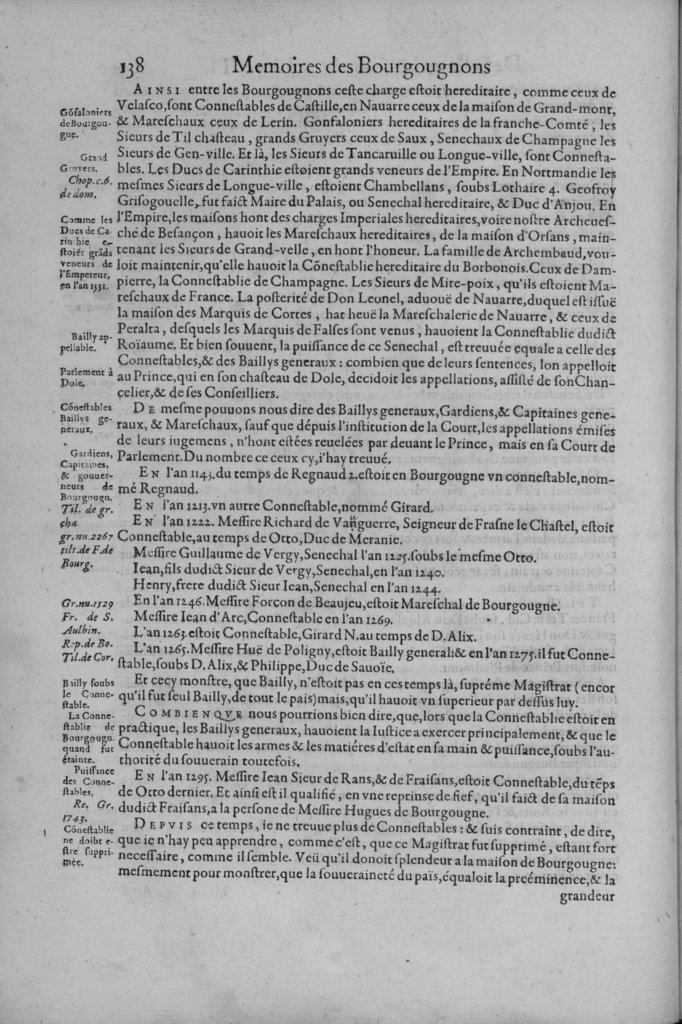 138 Memoires des Bourgougnons
AINSI entre les Bourgougnons ceſte charge eſtoit hereditaire, comme ceux de
Velaſco, ſont Conneſtables de Caſtille, en Nauarre ceux de la maiſon de Grand-mont,
& Mareſchaux ceux de Lerin. Gonfaloniers hereditaires de la franche-Comté, les
Sieurs de Til chaſteau, grands Gruyers ceux de Saux, Senechaux de Champagne les
Sieurs de Gen-ville. Et là, les Sieurs de Tancaruille ou Longue-ville, ſont Conneſta-
bles. Les Ducs de Carinthie eſtoient grands veneurs de l'Empire. En Nortmandie les
meſmes Sieurs de Longue-ville, eſtoient Chambellans, ſoubs Lothaire 4. Geofroy
Griſogouelle, fut faict Maire du Palais, ou Senechal hereditaire, & Duc d'Anjou. En
l'Empire, les maiſons hont des charges Imperiales hereditaires, voire noſtre Archeueſ-
ché de Beſançon, hauoit les Mareſchaux hereditaires, de la maiſon d'Orſans, main-
tenant les Sieurs de Grand-velle, en hont l'honeur. La famille de Archembaud, vou-
loit maintenir, qu'elle hauoit la Cõneſtablie hereditaire du Borbonois. Ceux de Dam-
pierre, la Conneſtablie de Champagne. Les Sieurs de Mire-poix, qu'ils eſtoient Ma-
reſchaux de France. La poſterité de Don Leonel, aduoué de Nauarre, duquel eſt iſſuë
la maiſon des Marquis de Cortes, hat heuë la Mareſchalerie de Nauarre, & ceux de
Peralta, deſquels les Marquis de Falſes ſont venus, hauoient la Conneſtablie dudict
Roïaume. Et bien ſouuent, la puiſſance de ce Senechal, eſt treuuée equale a celle des
Conneſtables, & des Baillys generaux: combien que de leurs ſentences, lon appelloit
au Prince, qui en ſon chaſteau de Dole, decidoit les appellations, aſſiſté de ſon Chan-
celier, & de ſes Conſeilliers.
DE meſme pouuons nous dire des Baillys generaux, Gardiens, & Capitaines gene-
raux, & Mareſchaux, ſauf que dépuis l'inſtitution de la Court, les appellations émiſes
de leurs iugemens, n'hont eſtées reuelées par deuant le Prince, mais en ſa Court de
Parlement. Du nombre ce ceux cy, i'hay treuué.
EN l'an 1143. du temps de Regnaud 2. eſtoit en Bourgougne vn conneſtable, nom-
mé Regnaud.
EN l'an 1213. vn autre Conneſtable, nommé Girard.
EN l'an 1222. Meſſire Richard de Vanguerre, Seigneur de Fraſne le Chaſtel, eſtoit
Conneſtable, au temps de Otto, Duc de Meranie.
Meſſire Guillaume de Vergy, Senechal l'an 1225. ſoubs le meſme Otto.
Iean, fils dudict Sieur de Vergy, Senechal, en l'an 1240.
Henry, frere dudict Sieur Iean, Senechal en l'an 1244.
En l'an 1246. Meſſire Forçon de Beaujeu, eſtoit Mareſchal de Bourgougne.
Meſſire Iean d'Arc, Conneſtable en l'an 1269.
L'an 1263. eſtoit Conneſtable, Girard N. au temps de D. Alix.
L'an 1265. Meſſire Huë de Poligny, eſtoit Bailly general: & en l'an 1275. il fut Conne-
ſtable, ſoubs D. Alix, & Philippe, Duc de Sauoïe.
Et cecy monſtre, que Bailly, n'eſtoit pas en ces temps là, ſupréme Magiſtrat (encor
qu'il fut ſeul Bailly, de tout le païs) mais, qu'il hauoit vn ſuperieur par deſſus luy.
COMBIENQVE nous pourrions bien dire, que, lors que la Conneſtablie eſtoit en
practique, les Baillys generaux, hauoient la Iuſtice a exercer principalement, & que le
Conneſtable hauoit les armes & les matiéres d'eſtat en ſa main & puiſſance, ſoubs l'au-
thorité du ſouuerain toutefois.
EN l'an 1295. Meſſire Iean Sieur de Rans, & de Fraiſans, eſtoit Conneſtable, du tẽps
de Otto dernier. Et ainſi eſt il qualifié, en vne reprinſe de fief, qu'il faict de ſa maiſon
dudict Fraiſans, a la perſone de Meſſire Hugues de Bourgougne.
DEPVIS ce temps, ie ne treuue plus de Conneſtables: & ſuis contraint, de dire,
que ie n'hay peu apprendre, comme c'eſt, que ce Magiſtrat fut ſupprimé, eſtant fort
neceſſaire, comme il ſemble. Veü qu'il donoit ſplendeur a la maiſon de Bourgougne:
meſmement pour monſtrer, que la ſouueraineté du païs, équaloit la preéminence, & la
grandeur
Gõfaloniers
de Bourgou-
gne.
Grand
Gruyers.
Chop. c. 6.
de dom.
Comme les
Ducs de Ca-
rinthie e-
ſtoiẽt grãds
veneurs de
l'Empereur,
en l'an 1331.
Bailly ap-
pellable.
Parlement à
Dole.
Cõneſtables
Baillys ge-
neraux.
Gardiens,
Capitaines,
& gouuer-
neurs de
Bourgougn.
Til. de gr.
cha
gr. nu. 2267
tilt. de F. de
Bourg.
Gr. nu. 1529
Fr. de S.
Aulbin.
Rep. de Bo.
Til. de Cor.
Bailly ſoubs
le Conne-
ſtable.
La Conne-
ſtablie de
Bourgougn.
quand fut
étainte.
Puiſſance
des Conne-
ſtables.
Re. Gr.
1743.
Cõneſtablie
ne doibt e-
ſtre ſuppri-
mée.